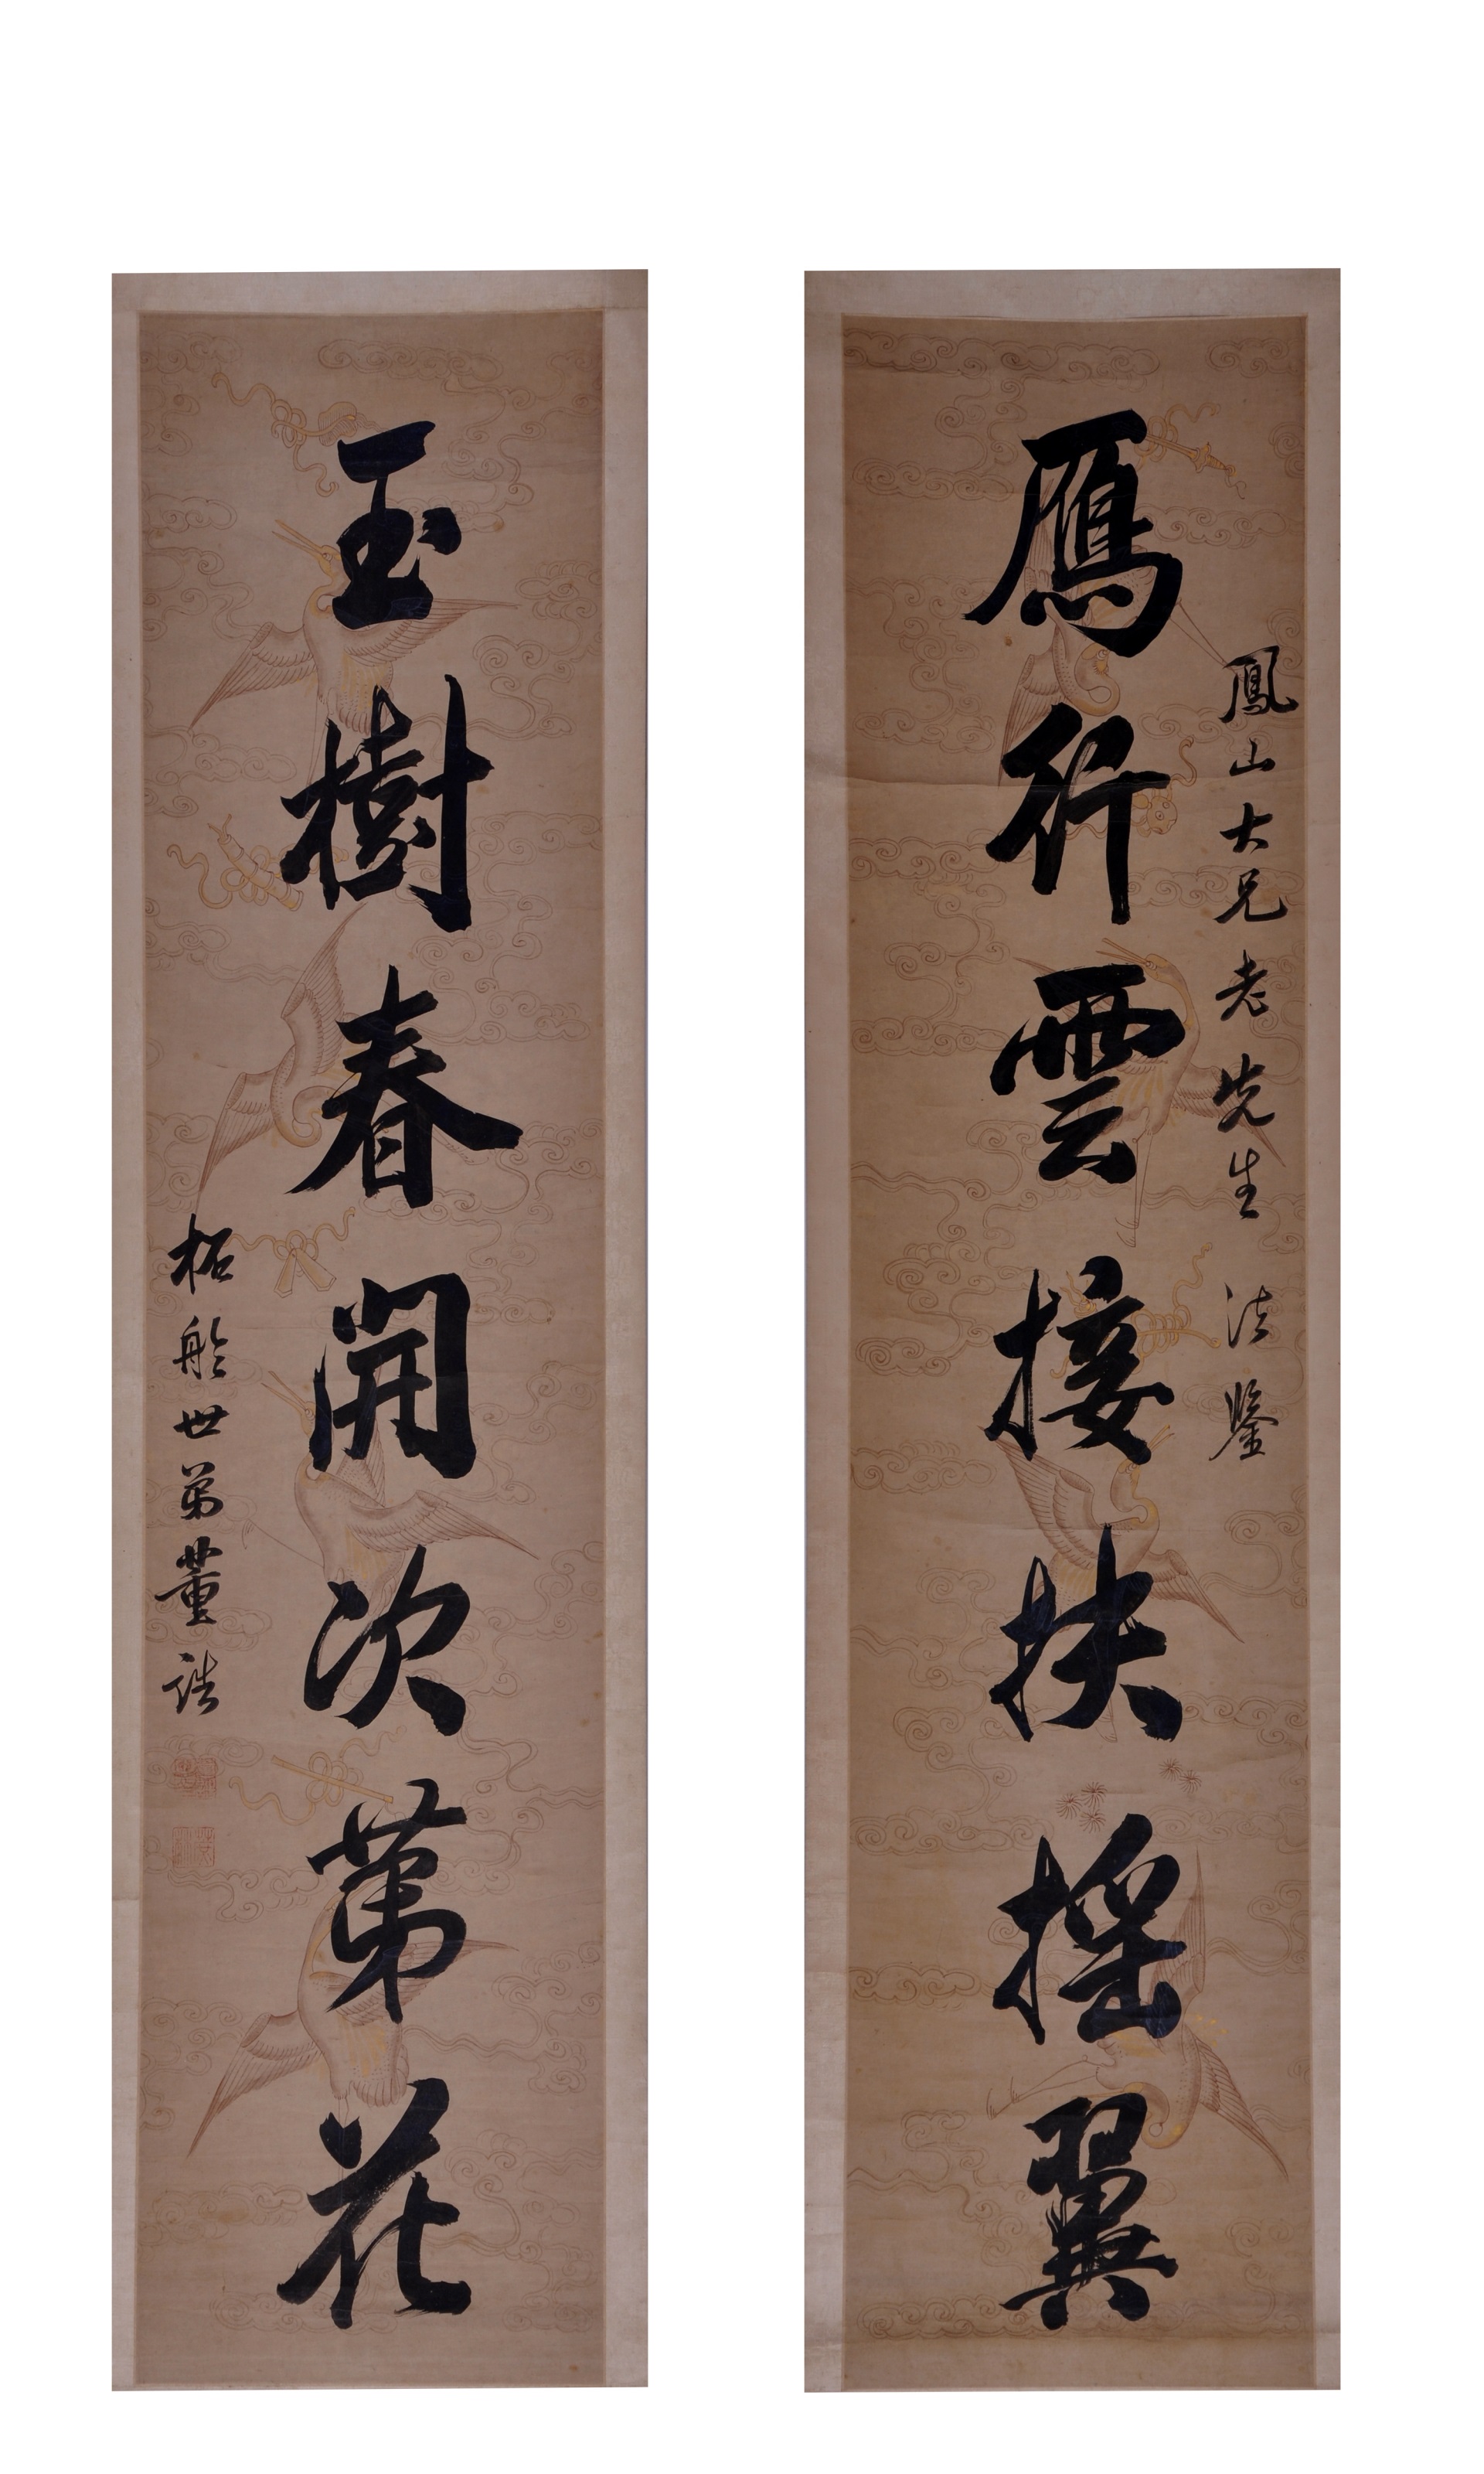 鳳山大兄老先生 法鑒
鴈行雲接扶摇翼
玉樹春開次第花
柘舲世弟董誥